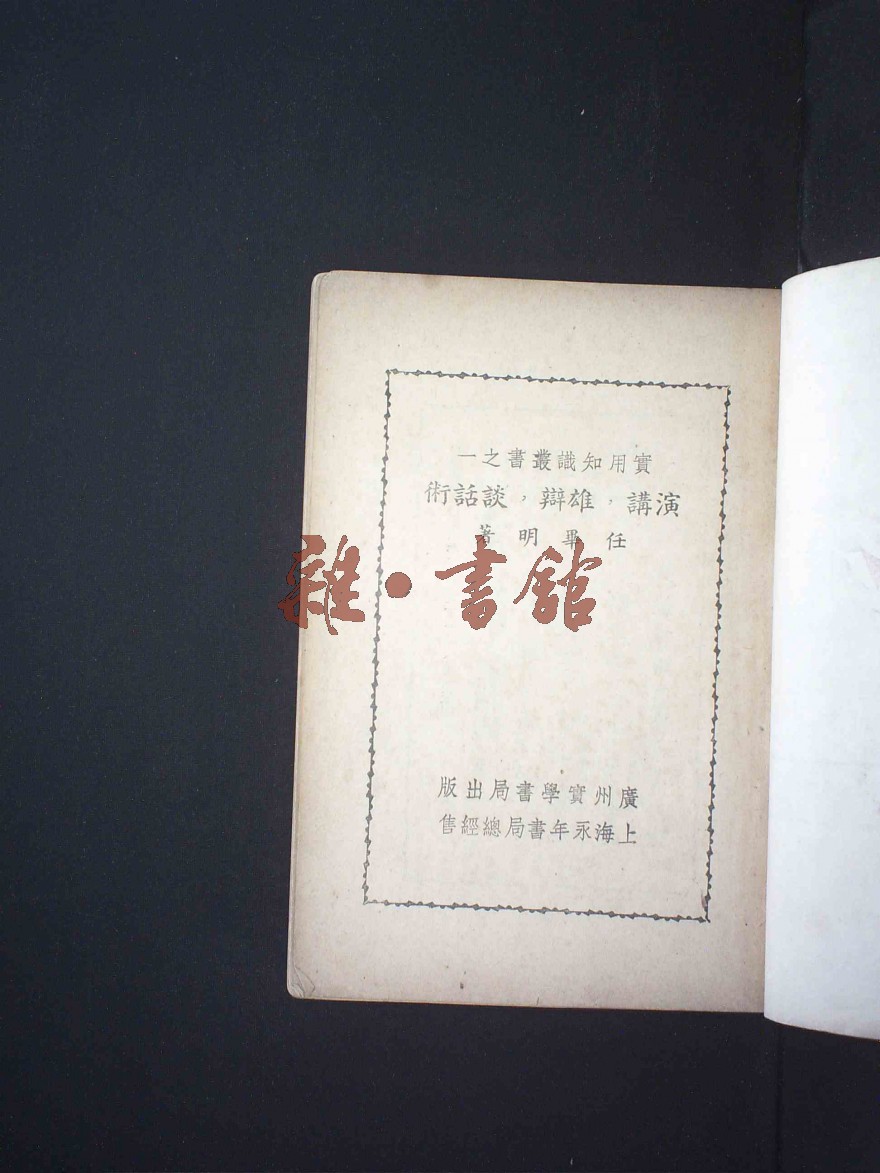 實用知識叢書之一
演講，雄辯，談話術
任畢明著
雜·書館
廣州實學書局出版
上海永年書局總經售